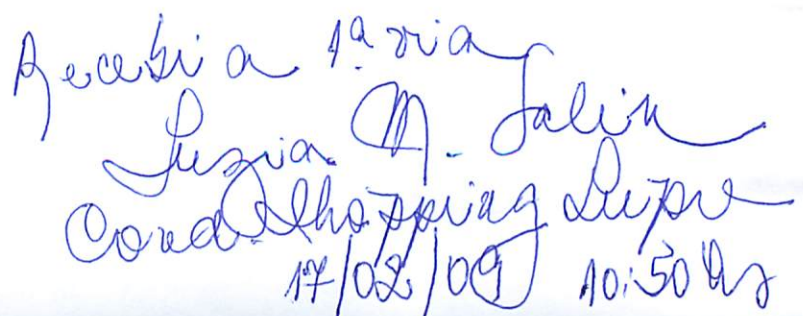 Recebi a 1ª via
Luzia M. Salin
Cond. Shopping
17/02/09 10:50 hs